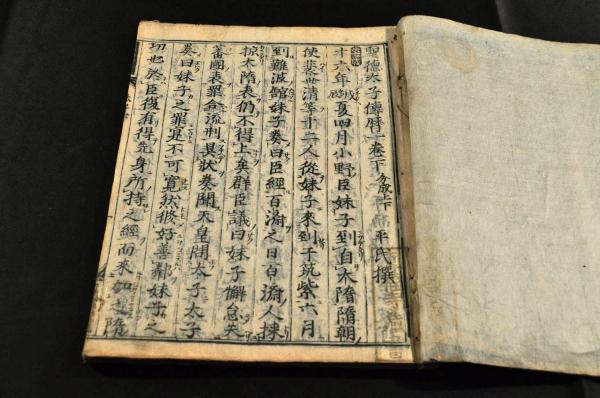 聖德太子傳暦一卷下 平氏撰
十六年戊辰夏四月小野臣妹子到自大隋隋朝
使裴世清等十二人從妹子來到于筑紫六月
到難波舘妹子奏曰臣經百濟之日百濟人
掠大隋表仍不得上矣群臣議曰妹子懈怠失
蕃國表罪合流刑具狀奏聞天皇問太子太子
奏曰妹子之罪寔不可寛然修好善鄰妹子之
切也臣復有得先身所持之經而來加之隋